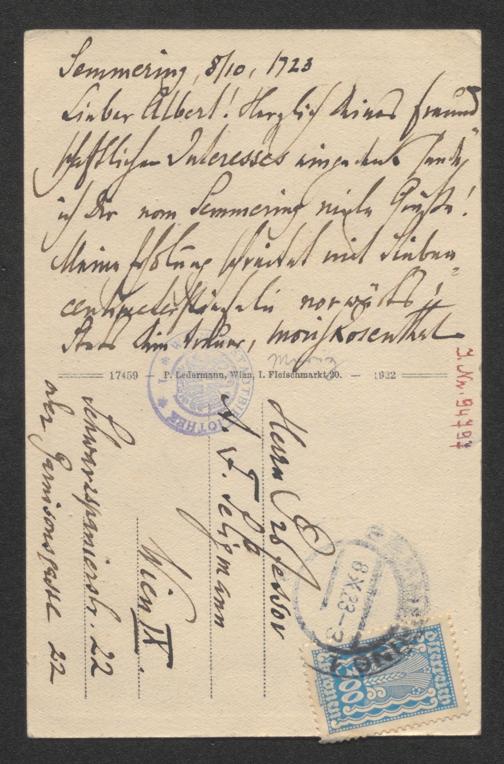 Semmering, 8/10, 1923
Lieber Albert! Herzlich Deines freund
schaftlichen Interesses eingedenk sende
ich Dir vom Semmering viele Grüße!
Meine Erholung schreitet mit Sieben-
centimeterstiefeln vorwärts!
Stets Dein treuer, Moriz Rosenthal
17459 P. Ledermann, Wien, I. Fleischmarkt 20. — 1922
Herrn Professor
A. F. Seligmann
Wien IX.
Schwarzspanierstr. 22
oder Garnisongasse 22
I.N. 94797
8.X.23